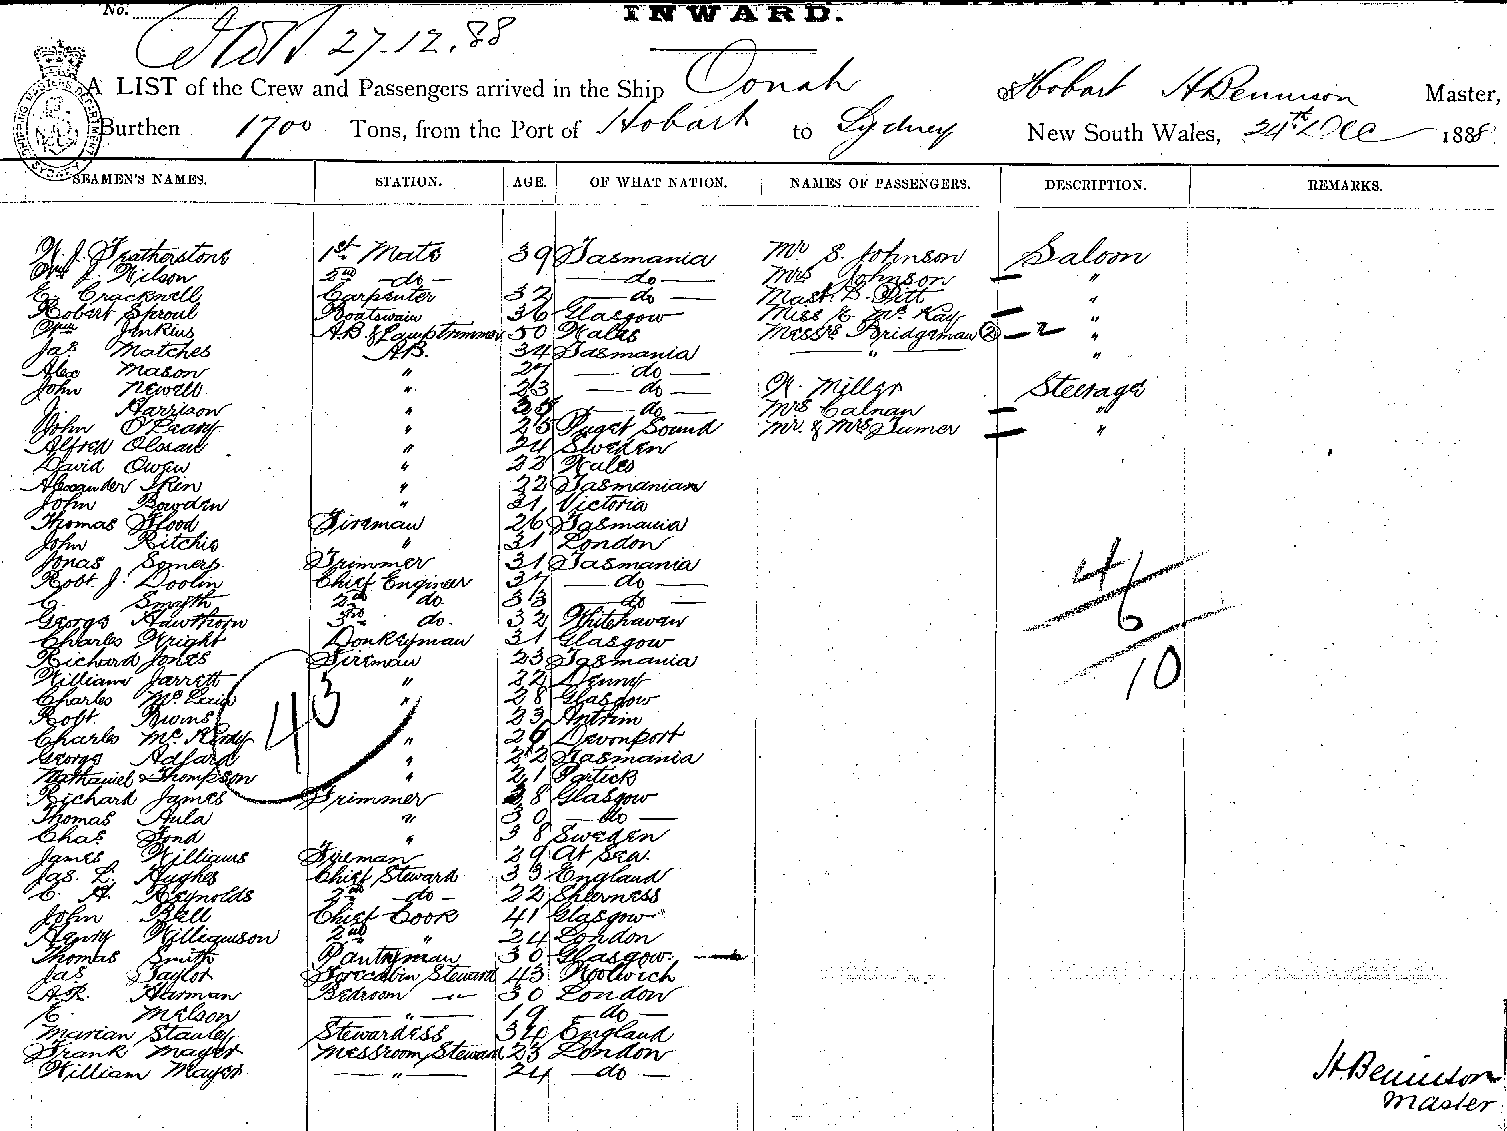 No.
INWARD.
27.12.88
A LIST of the Crew and Passengers arrived in the Ship Oonah of Hobart H Bennison Master,
Burthen 1700 Tons, from the Port of Hobart to Sydney New South Wales, 24th Dec 1888
SEAMEN'S NAMES. STATION. AGE. OF WHAT NATION. NAMES OF PASSENGERS. DESCRIPTION. REMARKS.
W. J. Featherstone 1st Mate 39 Tasmania Mr S. Johnson Saloon
Wm J. Wilson 2nd -do- — do — Mrs Johnson "
E. Cracknell Carpenter 32 — do — Mast. D. Pitt "
Robert Sproul Boatswain 36 Glasgow Miss E McKay "
Wm Jenkins AB & Lamptrimmer 50 Wales Messrs Bridgeman (2) - 2 "
Jas Matches AB. 34 Tasmania — " — "
Alex Mason " 27 — do —
John Newell " 23 — do — W. Miller Steerage
J. Harrison " — do — Mrs Calnan "
John O'Leary " 25 Puget Sound Mr. & Mrs Turner "
Alfred " 24 Sweden
David Owen " 22 Wales
Alexander Skin " 22 Tasmanian
John Bowden " 21 Victoria
Thomas Flood Fireman 26 Tasmania
John Ritchie " 31 London
Jonas Somers Trimmer 31 Tasmania
Robt. J. Doolin Chief Engineer 37 — do —
C. Smyth 2nd do. 33 — do —
George Hawthorn 3rd do. 32 Whitehaven
Charles Wright Donkeyman 31 Glasgow
Richard Jones Fireman 23 Tasmania
William Jarrett " 22 Denny
Charles " 28 Glasgow
Robt. 23 Antrim
Charles " 26 Devonport
George Adfard " 22 Tasmania
Nathaniel Thompson " 21 Partick
Richard James Trimmer 38 Glasgow
Thomas Aula " 30 — do —
Chas Fond " 38 Sweden
James Williams Fireman 29 At Sea.
Jas. L. Hughes Chief Steward 33 England
C. H. Reynolds 2nd - do - 22 Sheerness
John Bell Chief Cook 41 Glasgow
Henry Williamson 2nd " 24 London
Thomas Smith Pantryman 30 Glasgow.
Jas Taylor Forecabin Steward 43 Woolwich
A.R. Harman Bedroom — " — 30 London
E. Nelson — " — 19 — do —
Marian Stanley Stewardess 34 England
Frank Mayer Messroom Steward 23 London
William Mayer — " — 24 — do —
43
4
6
10
H. Bennison
Master